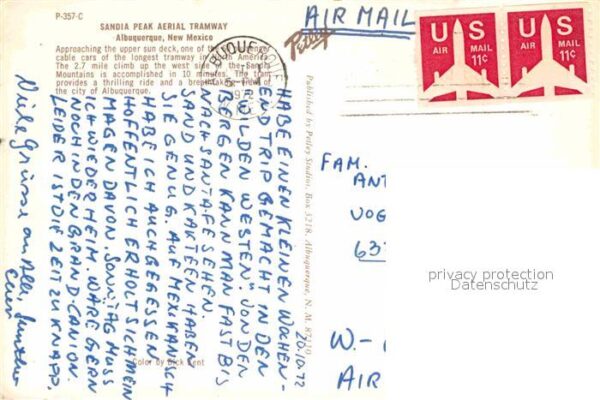 P-357-C
SANDIA PEAK AERIAL TRAMWAY
Albuquerque, New Mexico
Approaching the upper sun deck, one of the
cable cars of the longest tramway in North America.
The 2.7 mile climb up the west side of the Sandia
Mountains is accomplished in 10 minutes. The tram
provides a thrilling ride and a breathtaking view of
the city of Albuquerque.
AIR MAIL
Petley
1972
US
AIR MAIL
11¢
US
AIR MAIL
11¢
Published by Petley Studios, Box 3218, Albuquerque, N. M. 87110
20.10.72
HABE EINEN KLEINEN WOCHEN-
END TRIP GEMACHT IN DEN
"WILDEN WESTEN". VON DEN
BERGEN KANN MAN FAST BIS
NACH SANTA FE SEHEN.
SAND UND KAKTEEN HABEN
SIE GENUG. AUF MEXIKANISCH
HABE ICH AUCH GEGESSEN
HOFFENTLICH ERHOLT SICH MEIN
MAGEN DAVON. SONNTAG MUSS
ICH WIEDER HEIM. WÄRE GERN
NOCH IN DEN GRAND CANION.
LEIDER IST DIE ZEIT ZU KNAPP.
Viele Grüsse an Alle,
Color by Dick Kent
FAM.
ANT
VOG
633
W.-
AIR
privacy protection
Datenschutz